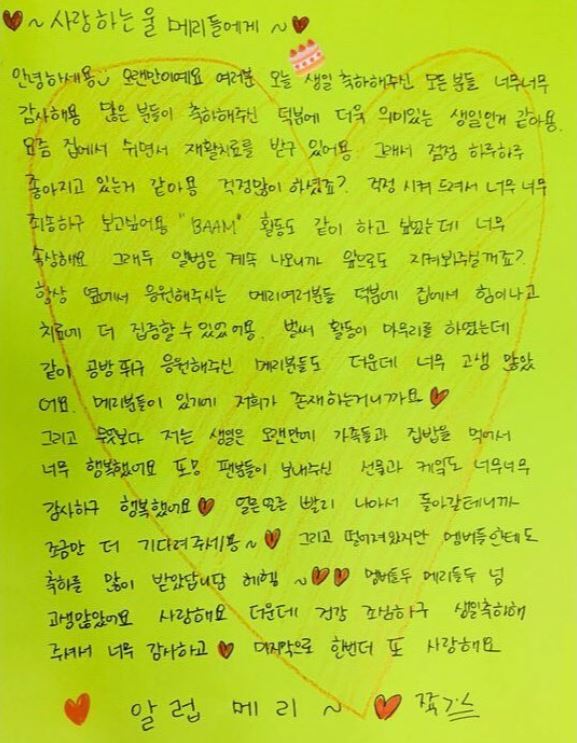 ♥ ~ 사랑하는 울 메리들에게 ~ ♥
안녕하세용 오랜만이예요 여러분 오늘 생일 축하해주신 모든분들 너무너무
감사해용 많은 분들이 축하해주신 덕분에 더욱 의미있는 생일인거 같아용.
요즘 집에서 쉬면서 재활치료를 받구 있어용. 그래서 점점 하루하루
좋아지고 있는거 같아용 걱정많이 하셨죠? 걱정 시켜 드려서 너무 너무
죄송하구 보고싶어용 "BAAM" 활동도 같이 하고 싶었는데 너무
속상해요 그래두 앨범은 계속 나오니까 앞으로도 지켜봐주실꺼죠?
항상 옆에서 응원해주시는 메리여러분들 덕분에 집에서 힘이나고
치료에 더 집중할 수 있었어용. 벌써 활동이 마무리를 하였는데
같이 공방 뛰구 응원해주신 메리분들도 더운데 너무 고생 많았
어요. 메리분들이 있기에 저희가 존재하는거니까요 ♥
그리고 무엇보다 저는 생일은 오랜만에 가족들과 집밥을 먹어서
너무 행복했어요 또 팬분들이 보내주신 선물과 케익도 너무너무
감사하구 행복했어요 ♥ 얼른 빨리 나아서 돌아갈테니까
조금만 더 기다려주세용 ~ ♥ 그리고 떨어져있지만 멤버들한테도
축하를 많이 받았답니당 헤헹 ~ ♥♥ 멤버들두 메리들두 넘
고생많았어요 사랑해요 더운데 건강 조심하구 생일축하해
주셔서 너무 감사하고 ♥ 마지막으로 한번더 또 사랑해요
♥ 알럽 메리 ~ ♥